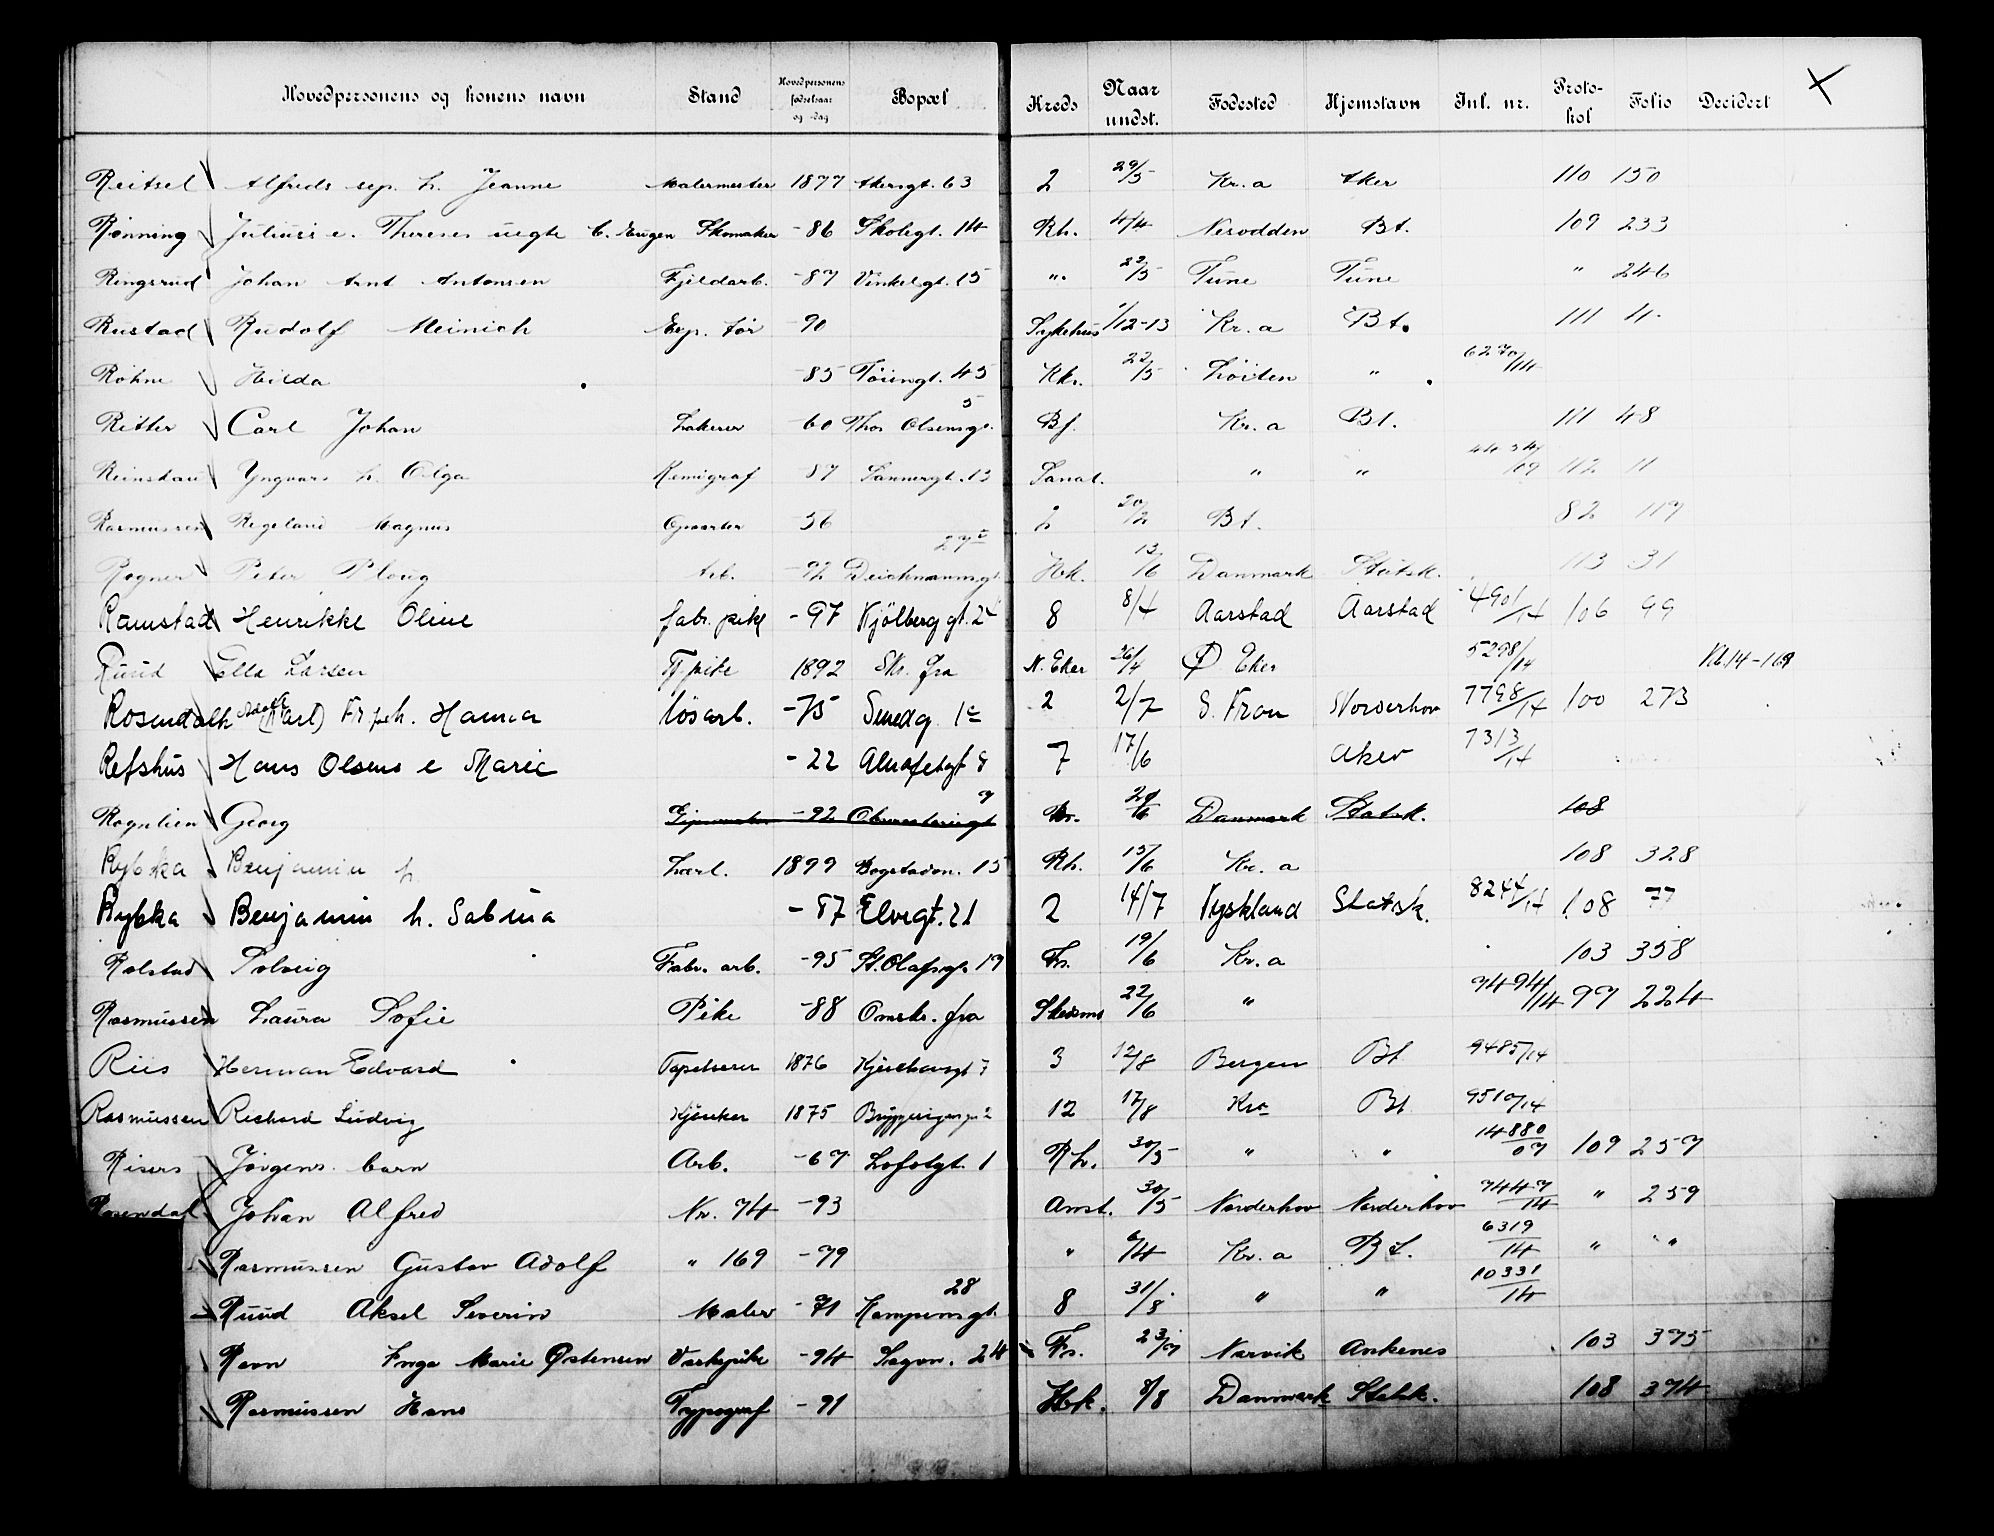 Hovedpersonens og konens navn Stand Hovedpersonens fødselsaar og -dag Bopæl Kreds Naar undst. Fødested Hjemstavn Inl. nr. Protokol Folio Decidert
Reitsel Alfreds sep. h. Jeanne Malermester 1877 Akersgt. 63 2 29/5 Kr.a Aker 110 150
Rønning Juliuss e. Thereses uegte b. Eugen Skomaker -86 Skolegt. 14 Rh. 4/4 Nesodden Bt. 109 233
Ringsrud Johan Arnt Antonsen Fjeldarb. -87 Vinkelgt. 15 " 22/5 Tune Tune " 246
Rustad Rudolf Meinich Exp. tør -90 Sykehus 1/12-13 Kr.a Bt. 111 4
Røhne Hilda -85 Tøiengt. 45 Kk. 22/5 Løiten " 6270/14
Ritter Carl Johan Lakerer -60 Thos Olsensg. 5 Bf. Kr.a Bt. 111 48
Reinskau Yngvars h. Olga Kemigraf 87 Sannergt. 13 Sanat. " " /09 112 11
Rasmussen Regeland Magnus -56 20/2 Bt. 82 119
Rogner Peter Ploug Arb. -92 Deichmannsgt. 27 Hk. 13/6 Danmark Statsk. 113 31
Ramstad Henrikke Oline fabr. pike -97 Kjølberggt. 24 8 8/4 Aarstad Aarstad 4901/14 106 99
Ruud Ella Larsen Tj. pike 1892 Skr. fra N. Eker 26/4 Ø Eker 5298/14 Kb. 14-169
Rosendalh Adolf (Karl) Fr. h. Hanna løsarb. -75 Smedg. 1c 2 2/7 S. Fron Norderhov 7798/14 100 273
Refshus Hans Olsens e Marie -22 Almafetgt 8 7 17/6 Aker 7313/14
Rognlien Georg -92 Observatoriegt 7 20/6 Danmark Statsk. 108
Rybka Benjamin h. Lærl. 1899 Bogstadvn. 15 Rh. 15/6 Kr.a 108 328
Rybka Benjamin h. Sabina -87 Elvegt. 21 2 14/7 Tyskland Statsk. 8244/14 108 77
Rolstad Solveig Fabr. arb. -95 St. Olafsgt. 19 Fr. 19/6 Kr.a 103 358
Rasmussen Laura Sofie Pike -88 Omskr. fra Skedsmo 22/6 " 7494/14 97 224
Riis Herman Edvard Tapetserer 1876 Kjerchowsgt 7 3 12/8 Bergen Bt. 9485/14
Rasmussen Richard Ludvig Kjørekar 1875 2 12 17/8 Kra Bt 9510/14
Risers Jørgens barn Arb. -67 Lofotgt. 1 Rh. 30/5 " " 14880/07 109 257
Rosendal Johan Alfred Nr. 74 -93 Anst. 30/5 Norderhov Norderhov 7447/14 " 259
Rasmussen Gustav Adolf " 169 -79 " 7/4 Kr.a Bt. 6319/14 " "
Ruud Aksel Severin Maler -71 Kampensgt. 28 8 31/8 " " 10331/14
Ravn Inga Marie Østensen Vaskepike -94 Sagvn. 24 Fs. 23/7 Narvik Ankenes 103 375
Rasmussen Hans Typograf -91 Hk. 8/8 Danmark Statsk. 108 374